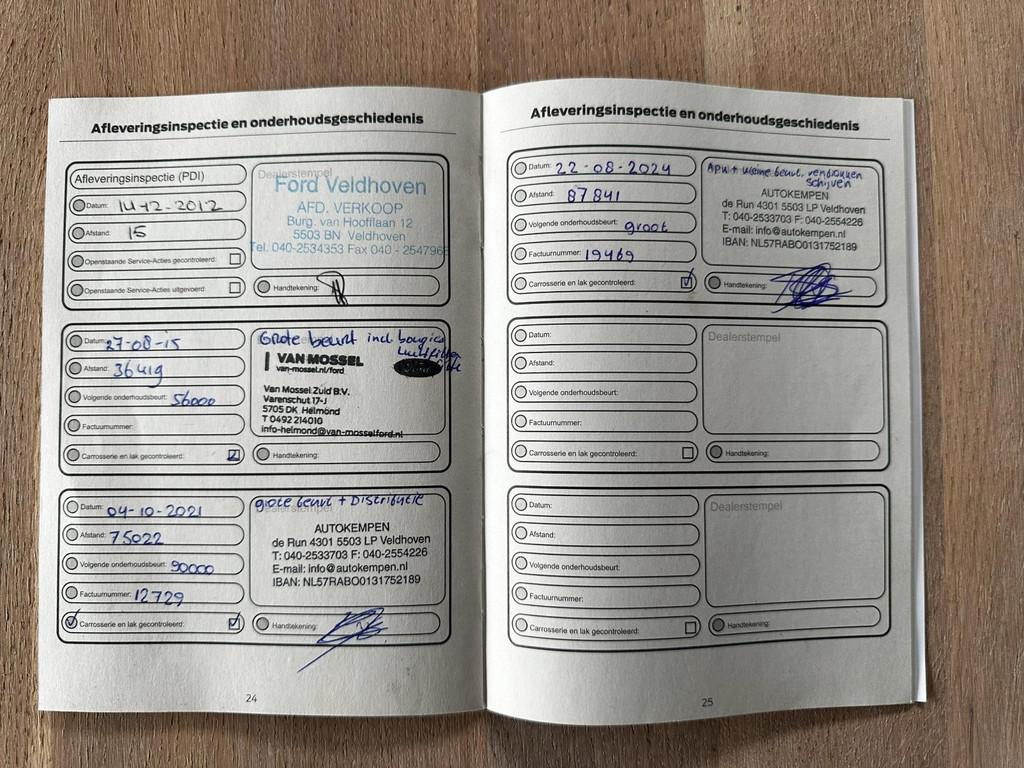 Afleveringsinspectie en onderhoudsgeschiedenis
Afleveringsinspectie (PDI)
Datum: 14-12-2012
Afstand: 15
Openstaande Service-Acties gecontroleerd:
Openstaande Service-Acties uitgevoerd:
Dealerstempel
Ford Veldhoven
AFD. VERKOOP
Burg. van Hoofflaan 12
5503 BN Veldhoven
Tel. 040-2534353 Fax 040 - 2547965
Handtekening:
Datum: 27-08-15
Afstand: 36419
Volgende onderhoudsbeurt: 56000
Factuurnummer:
Carrosserie en lak gecontroleerd:
Grote beurt incl bougies
luchtfilter
VAN MOSSEL
van-mossel.nl/ford
Van Mossel Zuid B.V.
Varenschut 17-J
5705 DK Helmond
T 0492 214010
info-helmond@van-mosselford.nl
Handtekening:
Datum: 04-10-2021
Afstand: 75022
Volgende onderhoudsbeurt: 90000
Factuurnummer: 12729
Carrosserie en lak gecontroleerd:
grote beurt + Distributie
Dealerstempel
AUTOKEMPEN
de Run 4301 5503 LP Veldhoven
T: 040-2533703 F: 040-2554226
E-mail: info@autokempen.nl
IBAN: NL57RABO0131752189
Handtekening:
24
Afleveringsinspectie en onderhoudsgeschiedenis
Datum: 22-08-2024
Afstand: 87841
Volgende onderhoudsbeurt: groot
Factuurnummer: 19469
Carrosserie en lak gecontroleerd:
APK + kleine beurt,
schijven
AUTOKEMPEN
de Run 4301 5503 LP Veldhoven
T: 040-2533703 F: 040-2554226
E-mail: info@autokempen.nl
IBAN: NL57RABO0131752189
Handtekening:
Datum:
Afstand:
Volgende onderhoudsbeurt:
Factuurnummer:
Carrosserie en lak gecontroleerd:
Dealerstempel
Handtekening:
Datum:
Afstand:
Volgende onderhoudsbeurt:
Factuurnummer:
Carrosserie en lak gecontroleerd:
Dealerstempel
Handtekening:
25